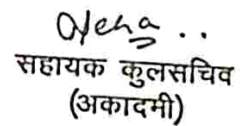 Neha..
सहायक कुलसचिव
(अकादमी)